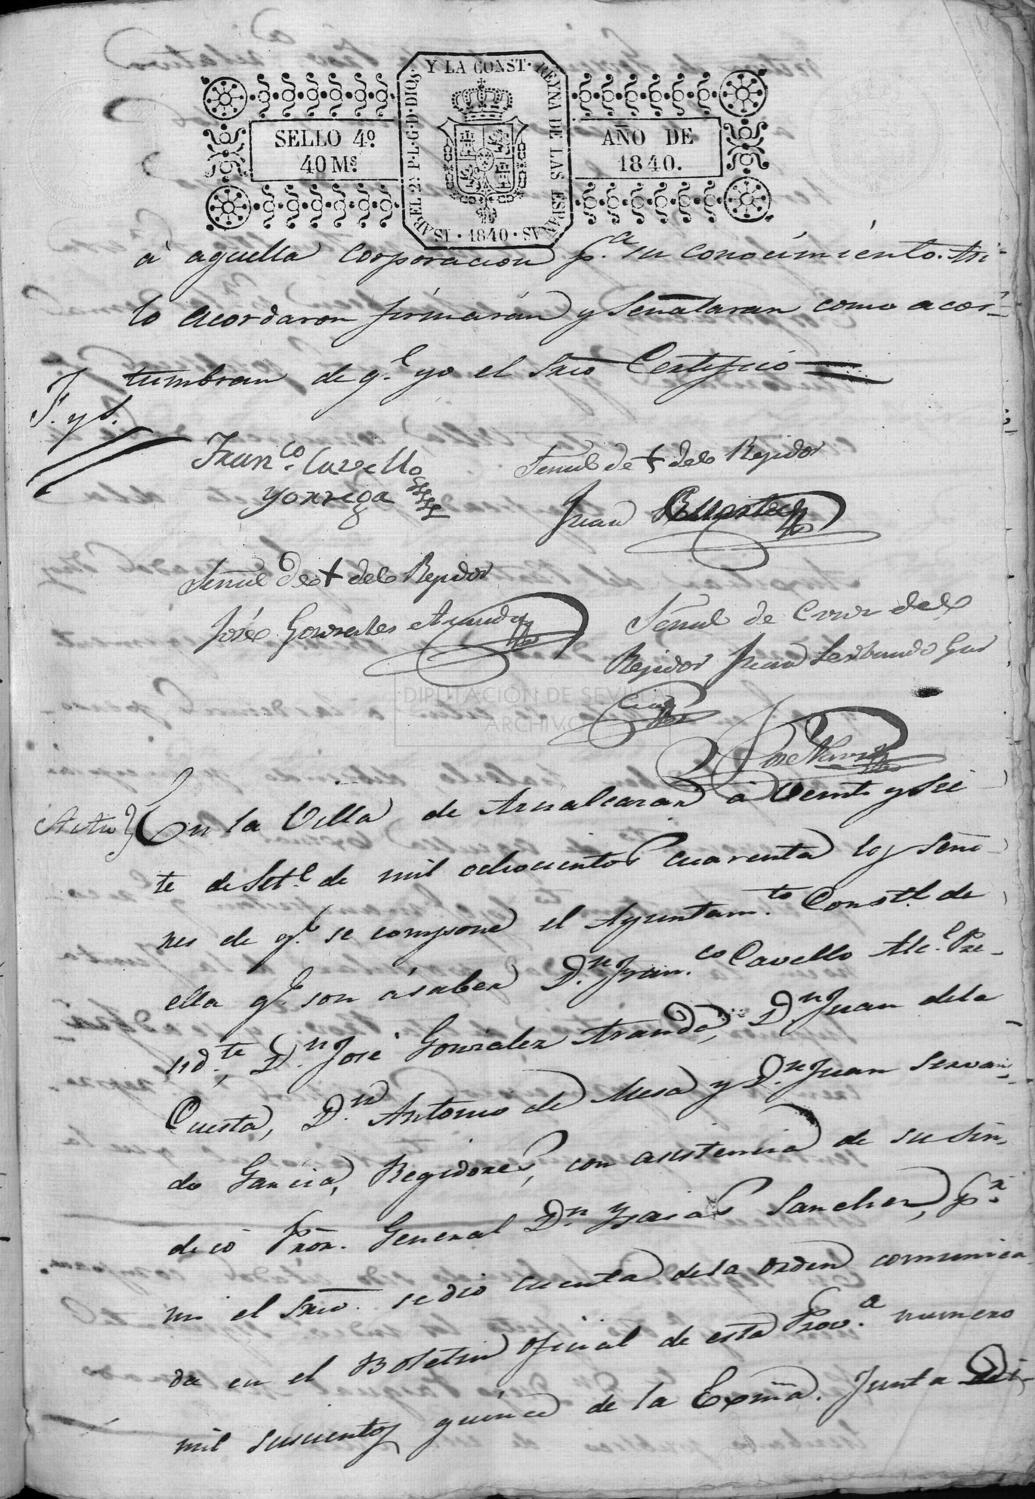 ISABEL 2ª P. L. G. D. DIOS Y LA CONST. REYNA DE LAS ESPAÑAS · 1840 ·
SELLO 4º
40 Ms.
AÑO DE
1840.
à aquella corporacion p.ª su conocimiento. Asi
lo acordaron firmarán y Señalaran como acos-
tumbran de q.e yo el Srio Certifico =
Fran.co Cavello
Señal de + del Rejidor
Juan
Señal de + del Rejidor
José Gonzales Aranda
Señal de Cruz del
Rejidor Juan Serbando Gar
cia
DIPUTACIÓN DE SEVILLA
ARCHIVO
En la Villa de Arnalcaran à Veinte y Sie
te de Set.e de mil ochocientos cuarenta los Seño
res de q.e se compone el Ayuntam.to Const.l de
ella q.e son à saber D.n Fran.co Cavello Alc.e Pre-
sid.te, D.n José González Aranda, D.n Juan dela
Cuesta, D.n Antonio de Mesa y D.n Juan Servan-
do Garcia, Regidores, con asistencia de su Sin-
dico Prõr. General D.n Ysaias Sanchez, p.r
mi el Srio. se dió cuenta dela orden comunica
da en el Boletin oficial de esta Prov.a numero
mil suscientos quince de la Exmã. Junta Di-